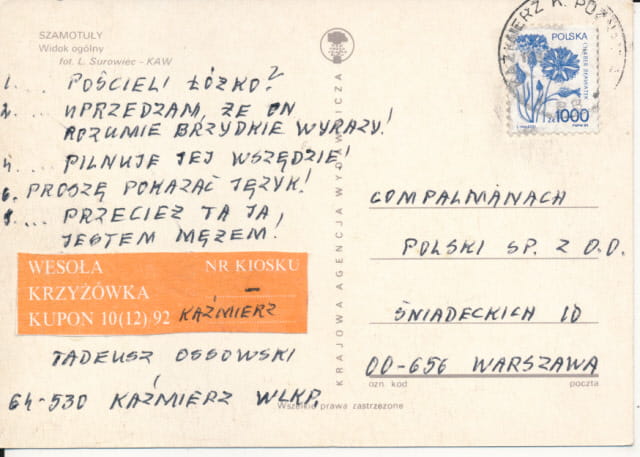 SZAMOTUŁY
Widok ogólny
fot. L. Surowiec - KAW
1... POŚCIELI ŁÓŻKO?
2... UPRZEDZAM, ŻE ON
ROZUMIE BRZYDKIE WYRAZY!
4... PILNUJE JEJ WSZĘDZIE!
6. PROSZĘ POKAZAĆ JĘZYK!
8... PRZECIEŻ TA JA,
JESTEM MĘŻEM!
WESOŁA NR KIOSKU
KRZYŻÓWKA –
KUPON 10(12)/92 KAŹMIERZ
TADEUSZ OSSOWSKI
64-530 KAŹMIERZ WLKP.
KRAJOWA AGENCJA WYDAWNICZA
KAŹMIERZ K. POZN
POLSKA
zł 1000
COMPALMANACH
POLSKI SP. Z O.O.
ŚNIADECKICH 10
00-656 WARSZAWA
ozn. kod poczta
Wszelkie prawa zastrzeżone